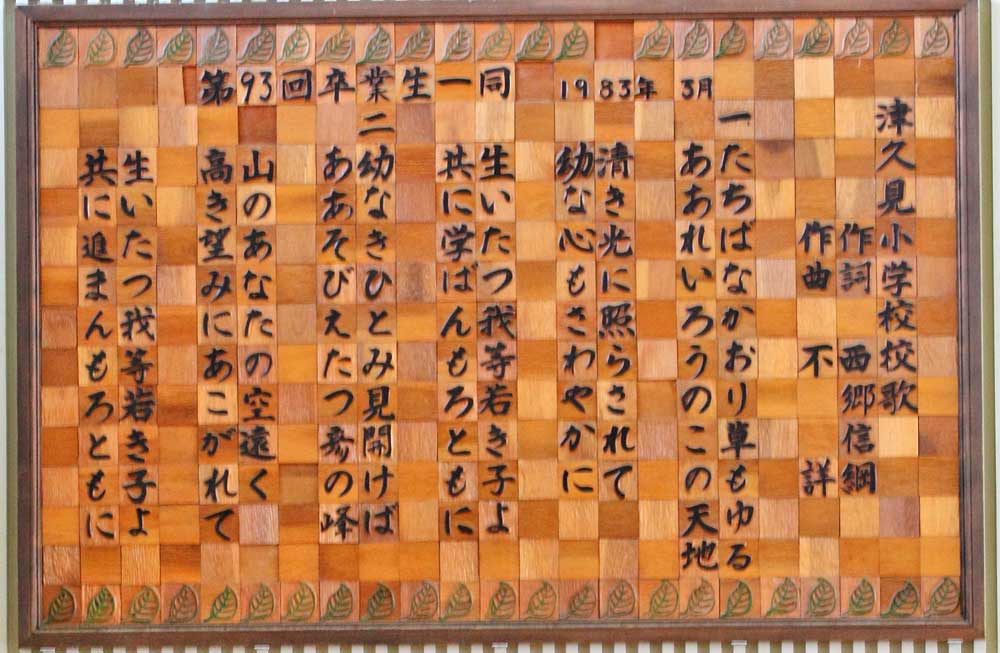 津久見小学校校歌
作詞 西郷信綱
作曲 不詳
一たちばなかおり草もゆる
ああれいろうのこの天地
清き光に照らされて
幼な心もさわやかに
生いたつ我等若き子よ
共に学ばんもろともに
二幼なきひとみ見開けば
ああそびえたつ彦の峰
山のあなたの空遠く
高き望みにあこがれて
生いたつ我等若き子よ
共に進まんもろともに
第93回卒業生一同 1983年 3月